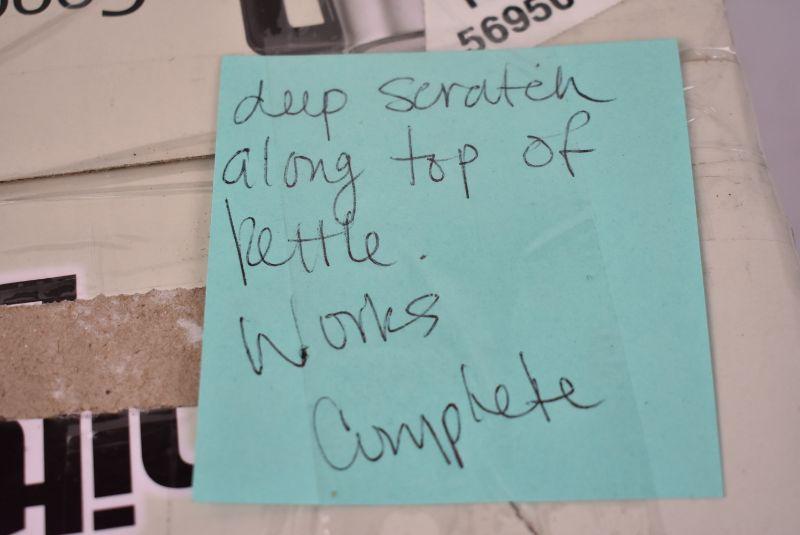 56950
deep scratch
along top of
kettle.
Works
Complete